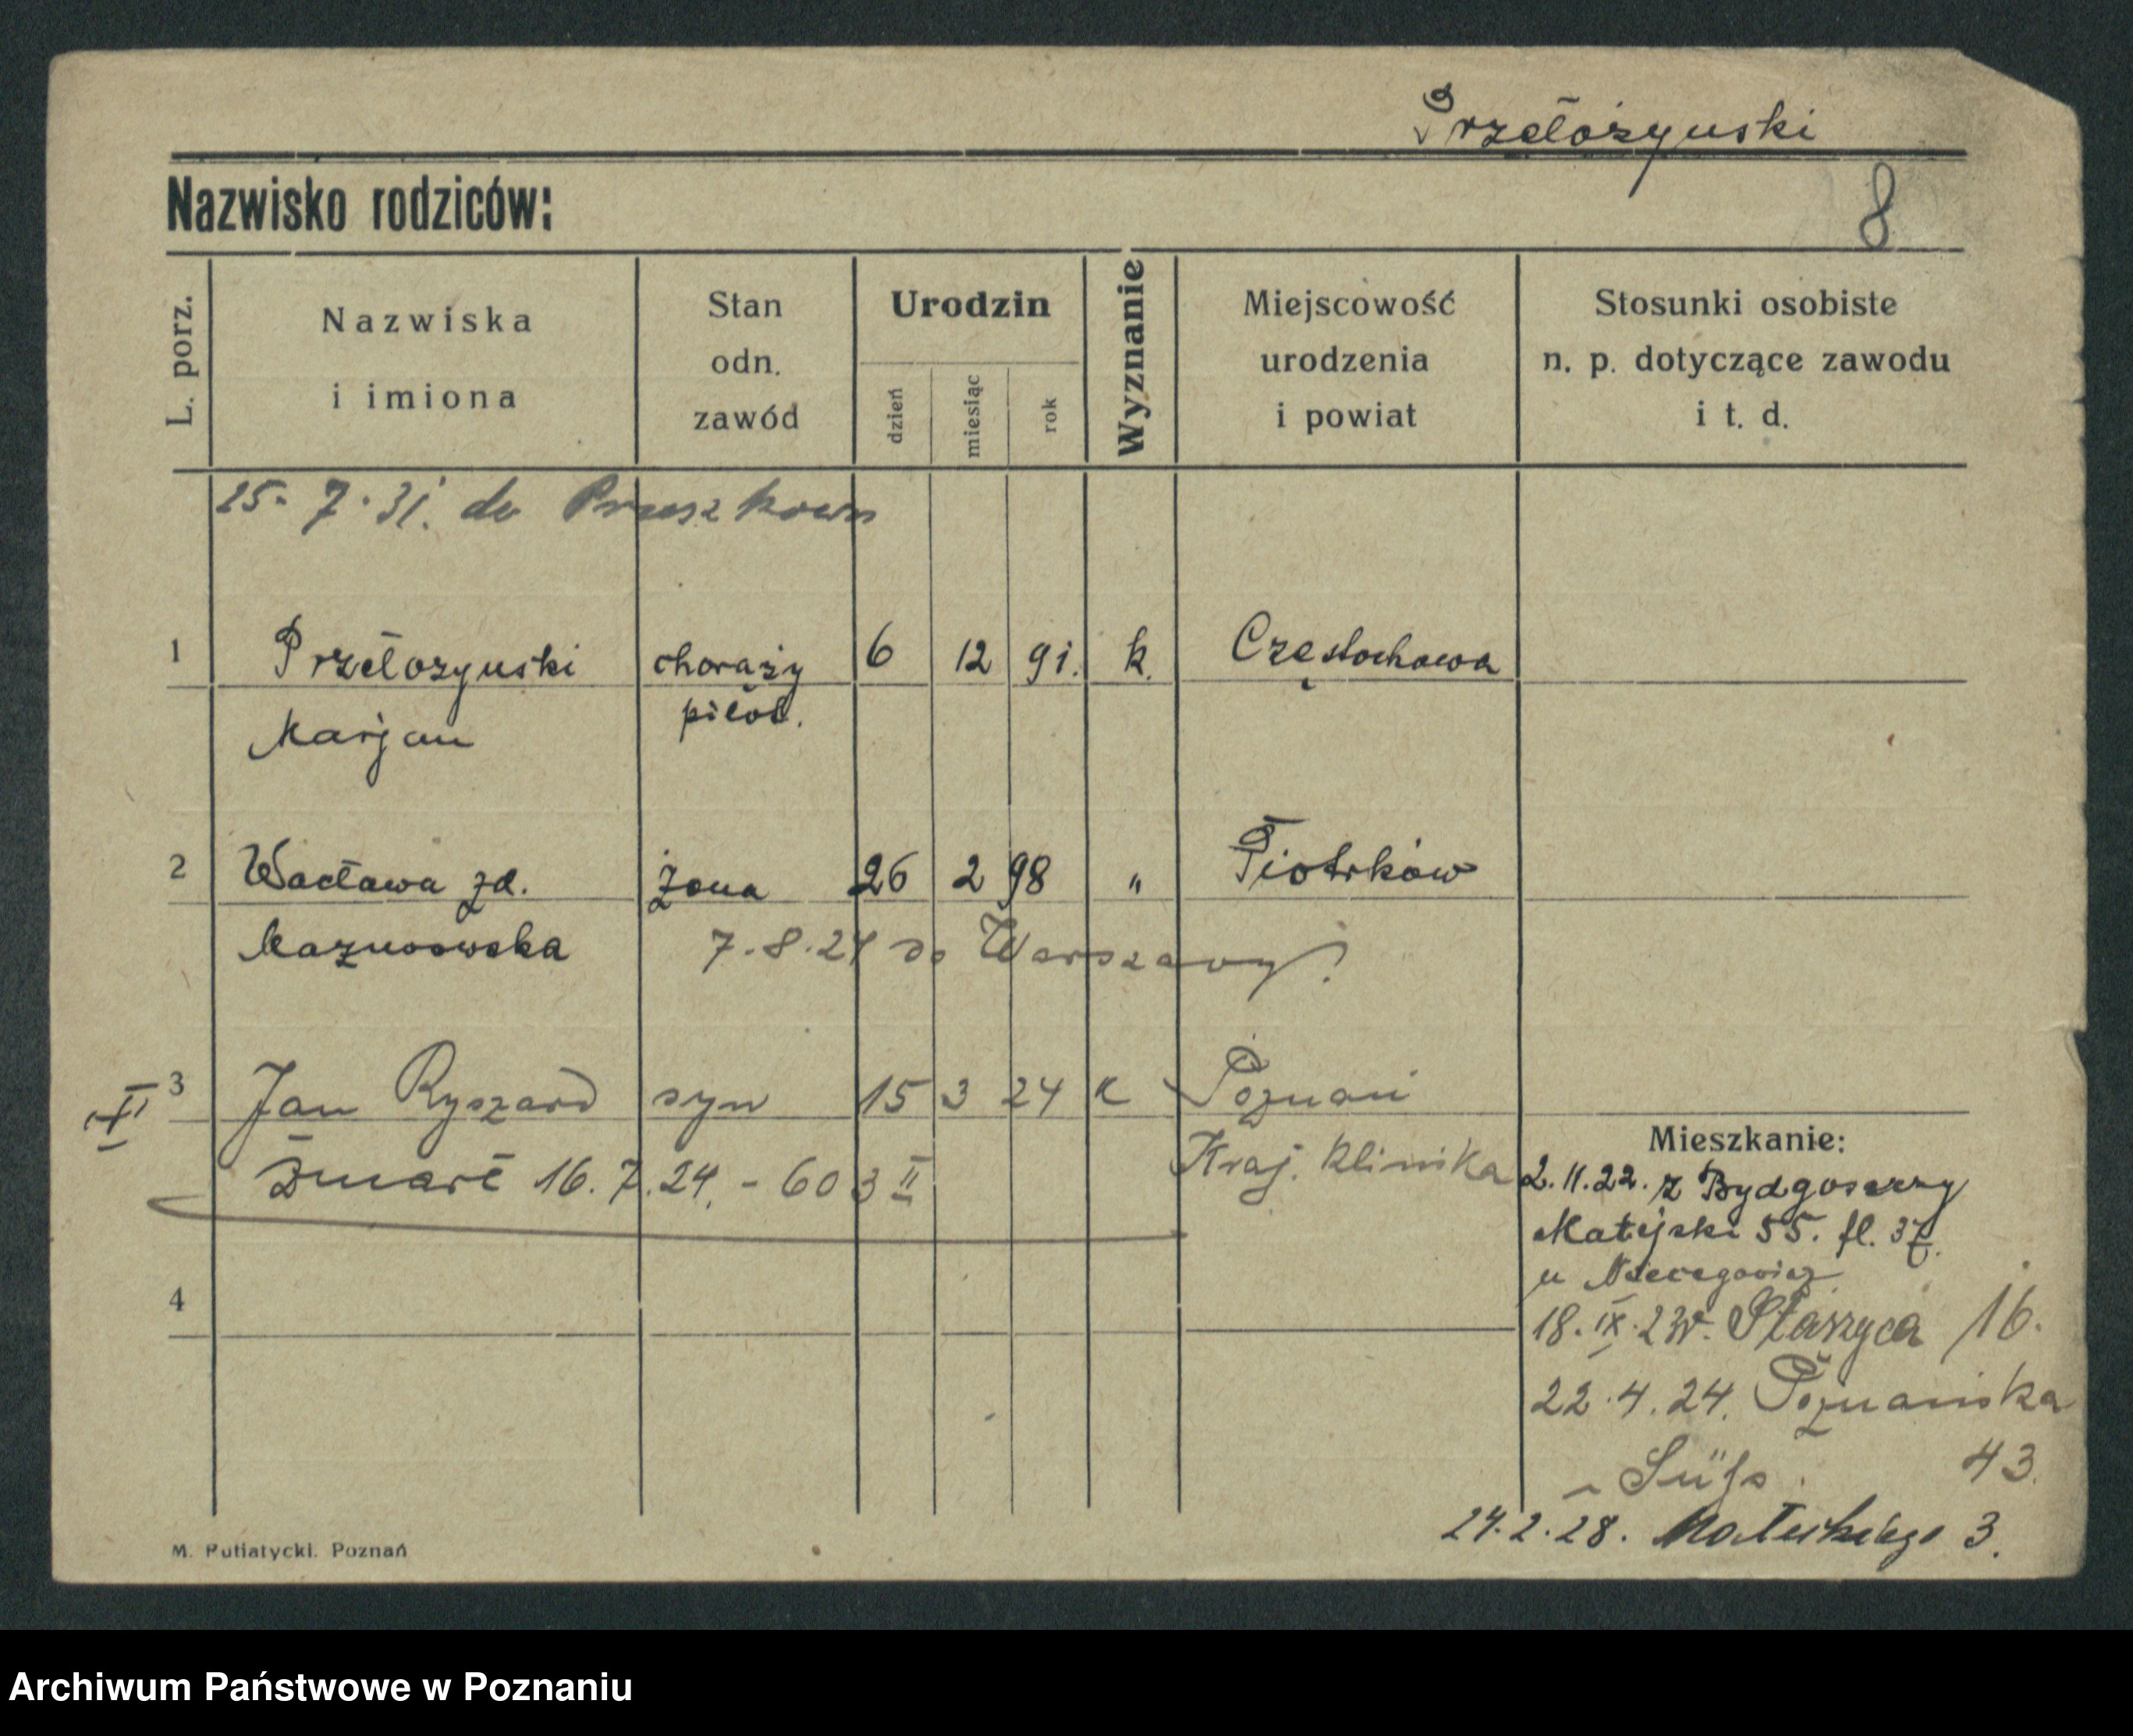 Przełożynski
Nazwisko rodziców:
8
L. porz.
Nazwiska
i imiona
Stan
odn.
zawód
Urodzin
dzień
miesiąc
rok
Wyznanie
Miejscowość
urodzenia
i powiat
Stosunki osobiste
n. p. dotyczące zawodu
i t. d.
25. 7. 31. do Pruszkowa
1 Przełozynski chorąży 6 12 91. k. Częstochowa
Marjan pilot.
2 Wacława zd. żona 26 2 98 " Piotrków
Maznowska 7.8.24 do Warszawy
3 Jan Ryszard syn 15 3 24 k Poznań
Kraj. klinika
Zmarł 16.7.24. - 603 II
4
Mieszkanie:
2.11.22. z Bydgoszczy
Matejski 55.
u
18. IX. Staszyca 16.
22.4.24. Poznańska
43.
Süfs.
24.2.28. Małeckiego 3.
M. Putiatycki. Poznań
Archiwum Państwowe w Poznaniu